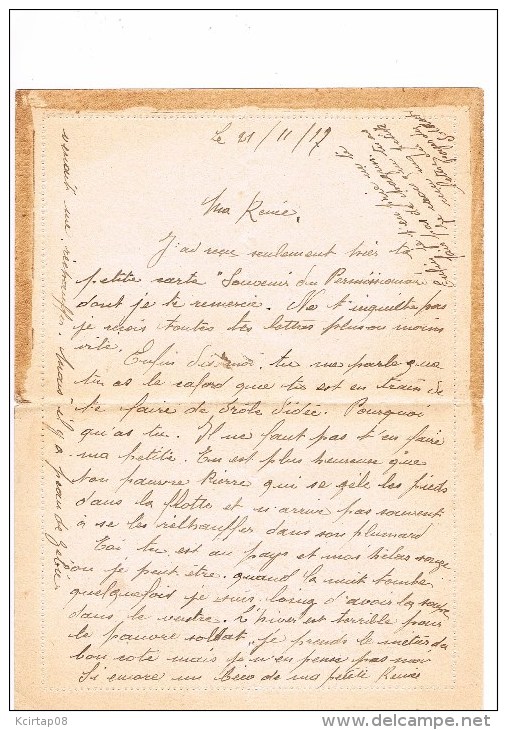 Le 21/11/17
Ma Renée,
J'ai reçu seulement hier ta
petite carte "Souvenir du Permissionnaire"
dont je te remercie. Ne t'inquiete pas
je reçois toutes tes lettres plus ou moins
vite.
Enfin dis moi, tu me parle que
tu as le cafard que tu est en train de
te faire de drôle d'idée. Pourquoi
qu'as tu. Il ne faut pas t'en faire
ma petite. Tu est plus heureuse que
ton pauvre Pierre qui se gèle les pieds
dans la flotte et n'arrive pas souvent
à se les réchauffer dans son plumard
Toi tu est au pays et moi hélas songe
ou je peut être, quand la nuit tombe
quelquefois je suis loing d'avoir la soupe
dans le ventre. L'hiver est terrible pour
le pauvre soldat, je prends le métier du
bon coté mais je n'en pense pas moi
Si encore un bico de ma petite Renée
venait me réchauffer. Mais il y a peau de zébie
Kcirtap08
www.delcampe.net